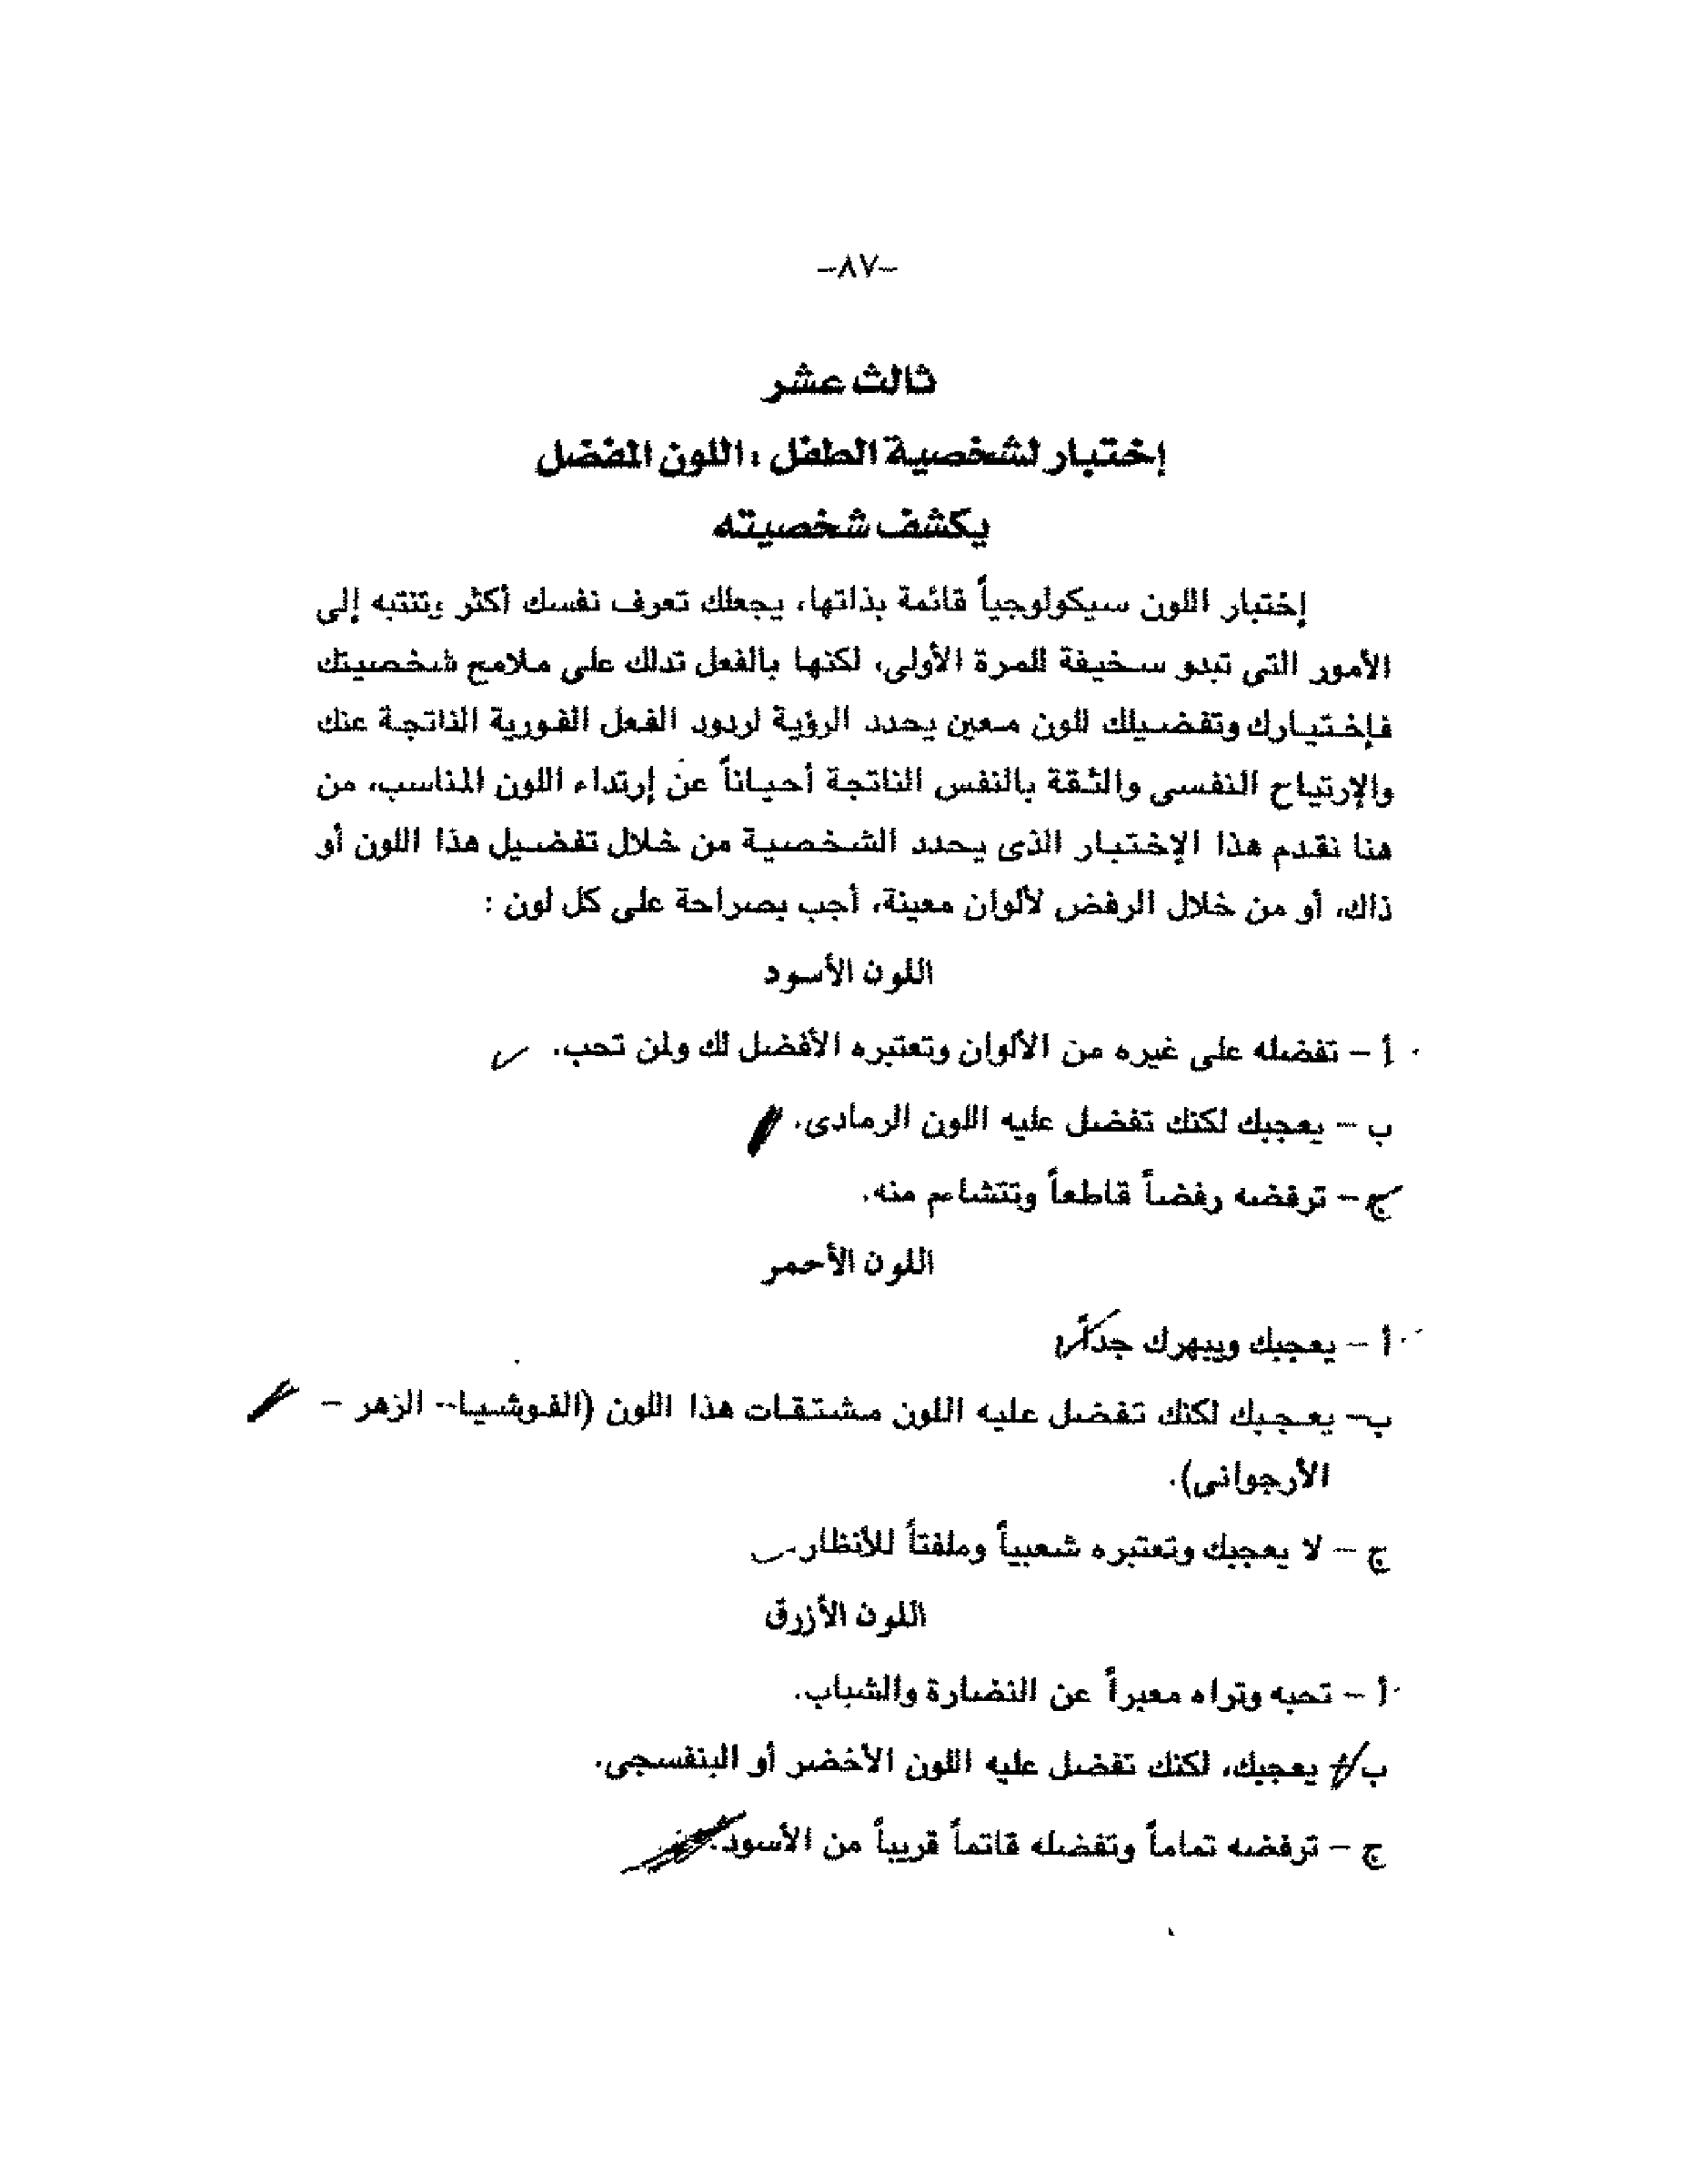 -٨٧-
ثالث عشر
إختبار لشخصية الطفل : اللون المفضل
يكشف شخصيته
إختبار اللون سيكولوجياً قائمة بذاتها، يجعلك تعرف نفسك أكثر وتنتبه إلى
الأمور التى تبدو سخيفة للمرة الأولى، لكنها بالفعل تدلك على ملامح شخصيتك
فإختيارك وتفضيلك للون معين يحدد الرؤية لردود الفعل الفورية الناتجة عنك
والإرتياح النفسى والثقة بالنفس الناتجة أحياناً عن إرتداء اللون المناسب، من
هنا نقدم هذا الإختبار الذى يحدد الشخصية من خلال تفضيل هذا اللون أو
ذاك، أو من خلال الرفض لألوان معينة، أجب بصراحة على كل لون :
اللون الأسود
أ - تفضله على غيره من الألوان وتعتبره الأفضل لك ولمن تحب.
ب - يعجبك لكنك تفضل عليه اللون الرمادى.
ج - ترفضه رفضاً قاطعاً وتتشاءم منه.
اللون الأحمر
أ - يعجبك ويبهرك جداً.
ب- يعجبك لكنك تفضل عليه اللون مشتقات هذا اللون (الفوشيا- الزهر -
الأرجوانى).
ج - لا يعجبك وتعتبره شعبياً وملفتاً للأنظار.
اللون الأزرق
أ - تحبه وتراه معبراً عن النضارة والشباب.
ب - يعجبك، لكنك تفضل عليه اللون الأخضر أو البنفسجى.
ج - ترفضه تماماً وتفضله قاتماً قريباً من الأسود.